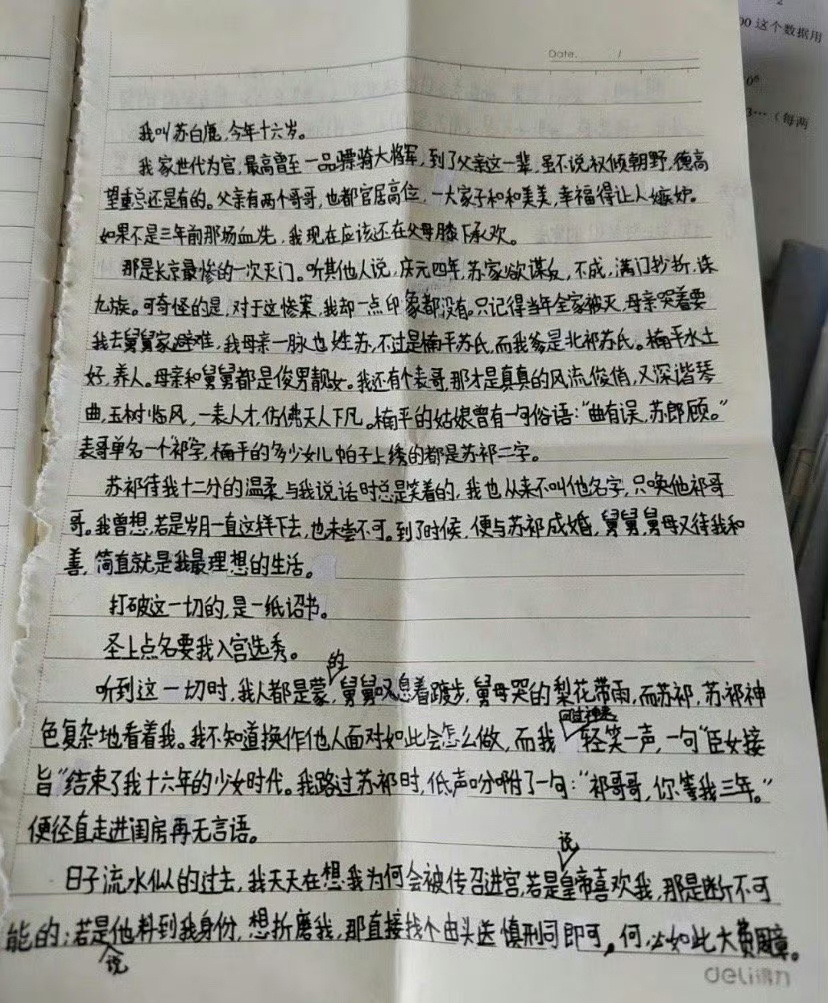 00 这个数据用
3…（每两
Date. /
我叫苏白鹿,今年十六岁。
我家世代为官,最高曾至一品骠骑大将军,到了父亲这一辈,虽不说权倾朝野,德高
望重总还是有的。父亲有两个哥哥,也都官居高位,一大家子和和美美,幸福得让人嫉妒。
如果不是三年前那场血洗,我现在应该还在父母膝下承欢。
那是长京最惨的一次灭门。听其他人说,庆元四年,苏家欲谋反,不成,满门抄折,诛
九族。可奇怪的是,对于这惨案,我却一点印象都没有。只记得当年全家被灭,母亲哭着要
我去舅舅家避难,我母亲一脉也姓苏,不过是楠平苏氏,而我爹是北祁苏氏。楠平水土
好,养人。母亲和舅舅都是俊男靓女。我还有个表哥,那才是真真的风流俊俏,又深谙琴
曲,玉树临风,一表人才,仿佛天人下凡。楠平的姑娘曾有一句俗语:“曲有误,苏郎顾。”
表哥单名一个“祁”字,楠平的多少女儿帕子上绣的都是苏祁二字。
苏祁待我十二分的温柔,与我说话时总是笑着的,我也从来不叫他名字,只唤他祁哥
哥。我曾想,若是岁月一直这样下去,也未尝不可。到了时候,便与苏祁成婚,舅舅舅母又待我和
善,简直就是我最理想的生活。
打破这一切的,是一纸诏书。
圣上点名要我入宫选秀。
听到这一切时,我人都是蒙的,舅舅叹息着踱步,舅母哭的梨花带雨,而苏祁,苏祁神
色复杂地看着我。我不知道换作他人面对如此会怎么做,而我回过神来轻笑一声,一句“臣女接
旨”结束了我十六年的少女时代。我路过苏祁时,低声吩咐了一句:“祁哥哥,你等我三年。”
便径直走进闺房再无言语。
日子流水似的过去,我天天在想我为何会被传召进宫,若是说皇帝喜欢我,那是断不可
能的;若是说他料到我身份,想折磨我,那直接找个由头送慎刑司即可,何必如此大费周章。
deli得力